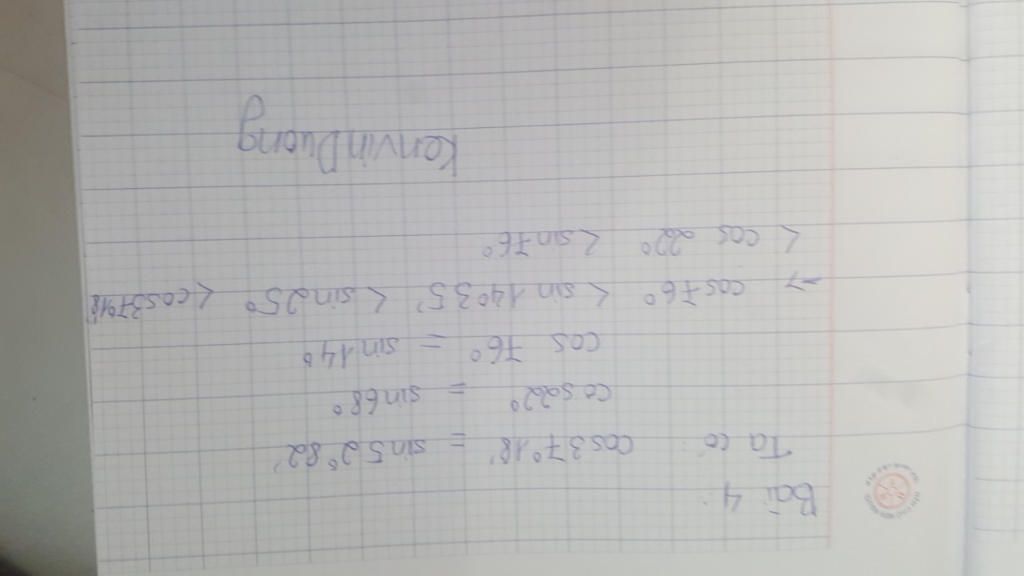 Bài 4:
Ta có: cos37°18' = sin52°82'
cos22° = sin68°
cos 76° = sin14°
→ cos76° < sin14°35' < sin25° < cos37°18'
< cos 22° < sin76°
KenvinDuong